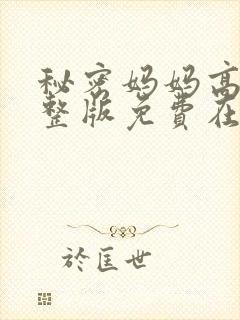 秘密妈妈高
整版免费在
於匡世